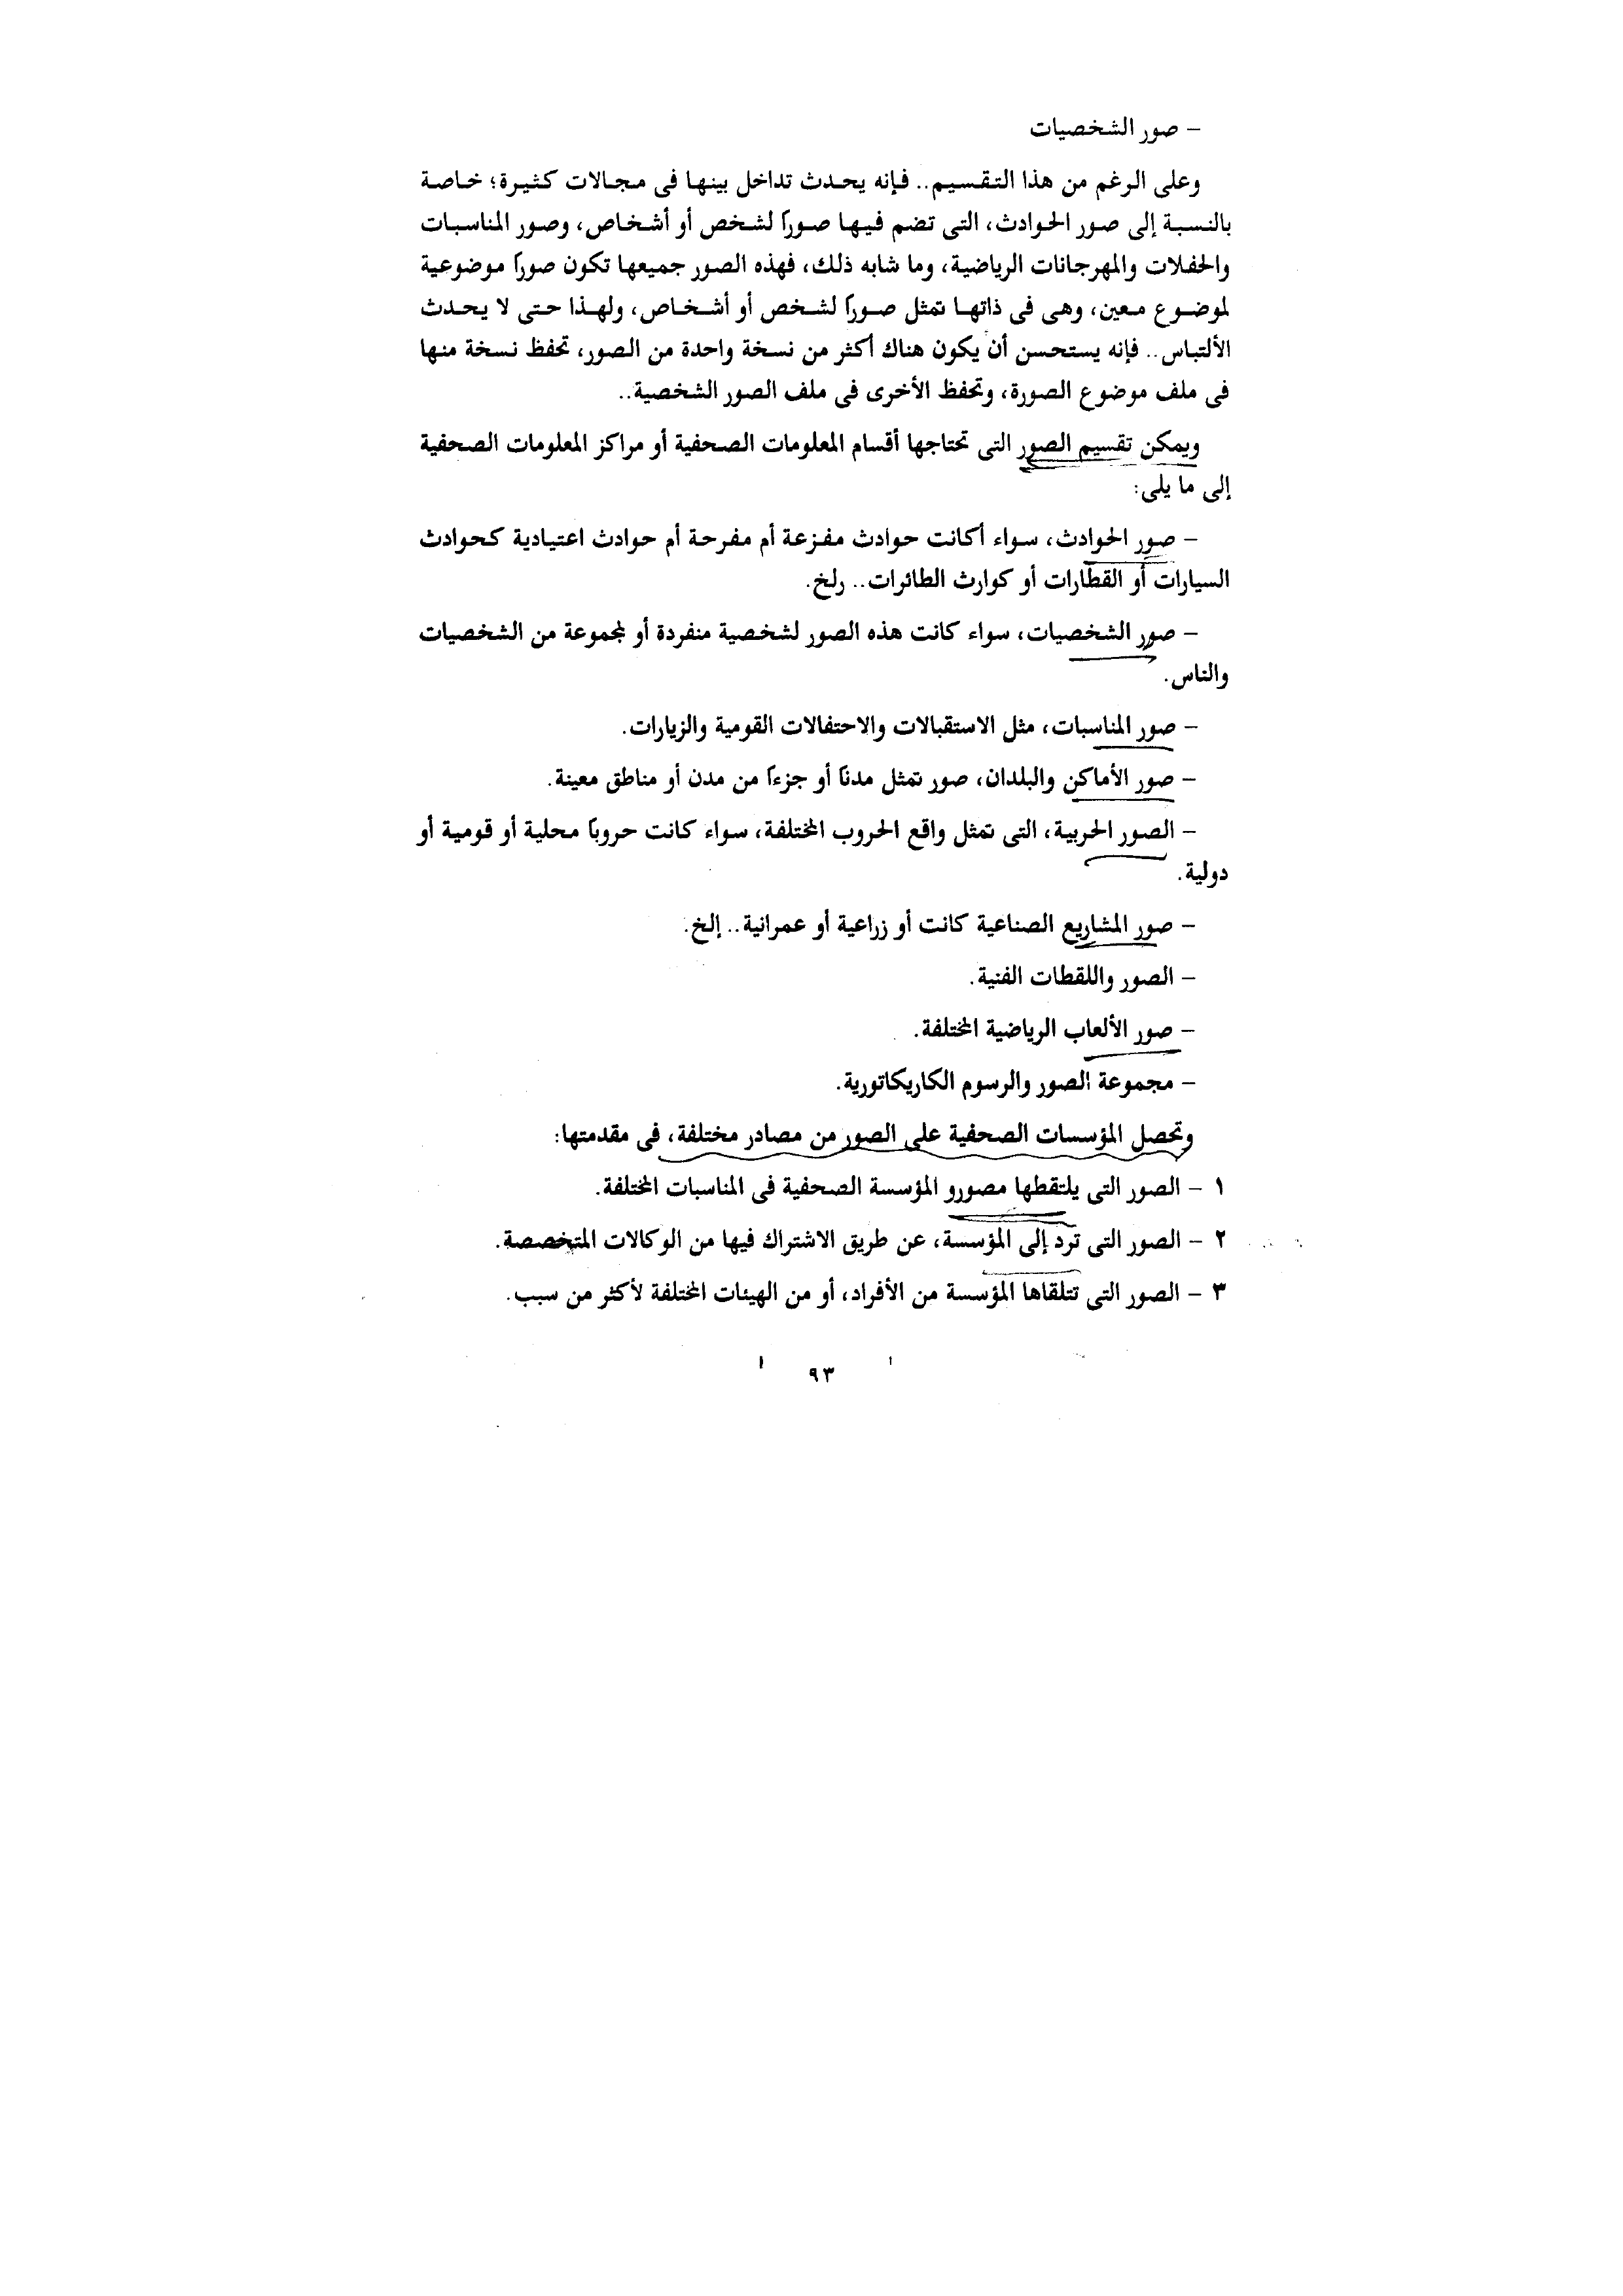 – صور الشخصيات
وعلى الرغم من هذا التقسيم.. فإنه يحدث تداخل بينها فى مجالات كثيرة؛ خاصة
بالنسبة إلى صور الحوادث، التى تضم فيها صورًا لشخص أو أشخاص، وصور المناسبات
والحفلات والمهرجانات الرياضية، وما شابه ذلك، فهذه الصور جميعها تكون صورًا موضوعية
لموضوع معين، وهى فى ذاتها تمثل صورًا لشخص أو أشخاص، ولهذا حتى لا يحدث
الألتباس.. فإنه يستحسن أن يكون هناك أكثر من نسخة واحدة من الصور، تحفظ نسخة منها
فى ملف موضوع الصورة، وتحفظ الأخرى فى ملف الصور الشخصية..
ويمكن تقسيم الصور التى تحتاجها أقسام المعلومات الصحفية أو مراكز المعلومات الصحفية
إلى ما يلى:
– صور الحوادث، سواء أكانت حوادث مفزعة أم مفرحة أم حوادث اعتيادية كحوادث
السيارات أو القطارات أو كوارث الطائرات.. رلخ.
– صور الشخصيات، سواء كانت هذه الصور لشخصية منفردة أو لمجموعة من الشخصيات
والناس.
– صور المناسبات، مثل الاستقبالات والاحتفالات القومية والزيارات.
– صور الأماكن والبلدان، صور تمثل مدنًا أو جزءًا من مدن أو مناطق معينة.
– الصور الحربية، التى تمثل واقع الحروب المختلفة، سواء كانت حروبًا محلية أو قومية أو
دولية.
– صور المشاريع الصناعية كانت أو زراعية أو عمرانية.. إلخ.
– الصور واللقطات الفنية.
– صور الألعاب الرياضية المختلفة.
– مجموعة الصور والرسوم الكاريكاتورية.
وتحصل المؤسسات الصحفية على الصور من مصادر مختلفة، فى مقدمتها:
١ – الصور التى يلتقطها مصورو المؤسسة الصحفية فى المناسبات المختلفة.
٢ – الصور التى ترد إلى المؤسسة، عن طريق الاشتراك فيها من الوكالات المتخصصة.
٣ – الصور التى تتلقاها المؤسسة من الأفراد، أو من الهيئات المختلفة لأكثر من سبب.
٩٣